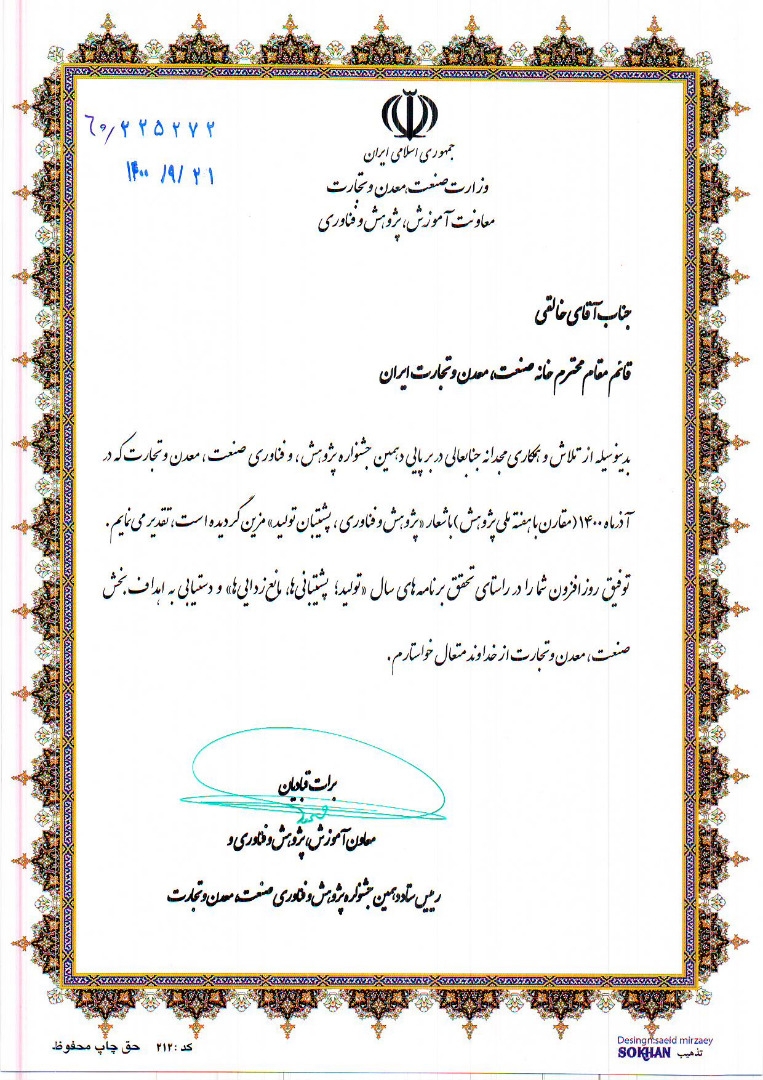 ۶۰/۲۲۵۲۷۲
۱۴۰۰/۹/۲۱
جمهوری اسلامی ایران
وزارت صنعت، معدن و تجارت
معاونت آموزش، پژوهش و فناوری
جناب آقای خالقی
قائم مقام محترم خانه صنعت، معدن و تجارت ایران
بدینوسیله از تلاش و همکاری مجدانه جنابعالی در برپایی دهمین جشنواره پژوهش، و فناوری صنعت، معدن و تجارت که در
آذرماه ۱۴۰۰ (مقارن با هفته ملی پژوهش) با شعار «پژوهش و فناوری، پشتیبان تولید» مزین گردیده است، تقدیر می نمایم.
توفیق روز افزون شما را در راستای تحقق برنامه های سال «تولید؛ پشتیبانی‌ها، مانع زدایی‌ها» و دستیابی به اهداف بخش
صنعت، معدن و تجارت از خداوند متعال خواستارم.
برات قبادیان
معاون آموزش، پژوهش و فناوری و
رییس ستاد دهمین جشنواره پژوهش و فناوری صنعت، معدن و تجارت
کد: ۲۱۲ حق چاپ محفوظ
Desingn:saeid mirzaey
SOKHAN تذهیب